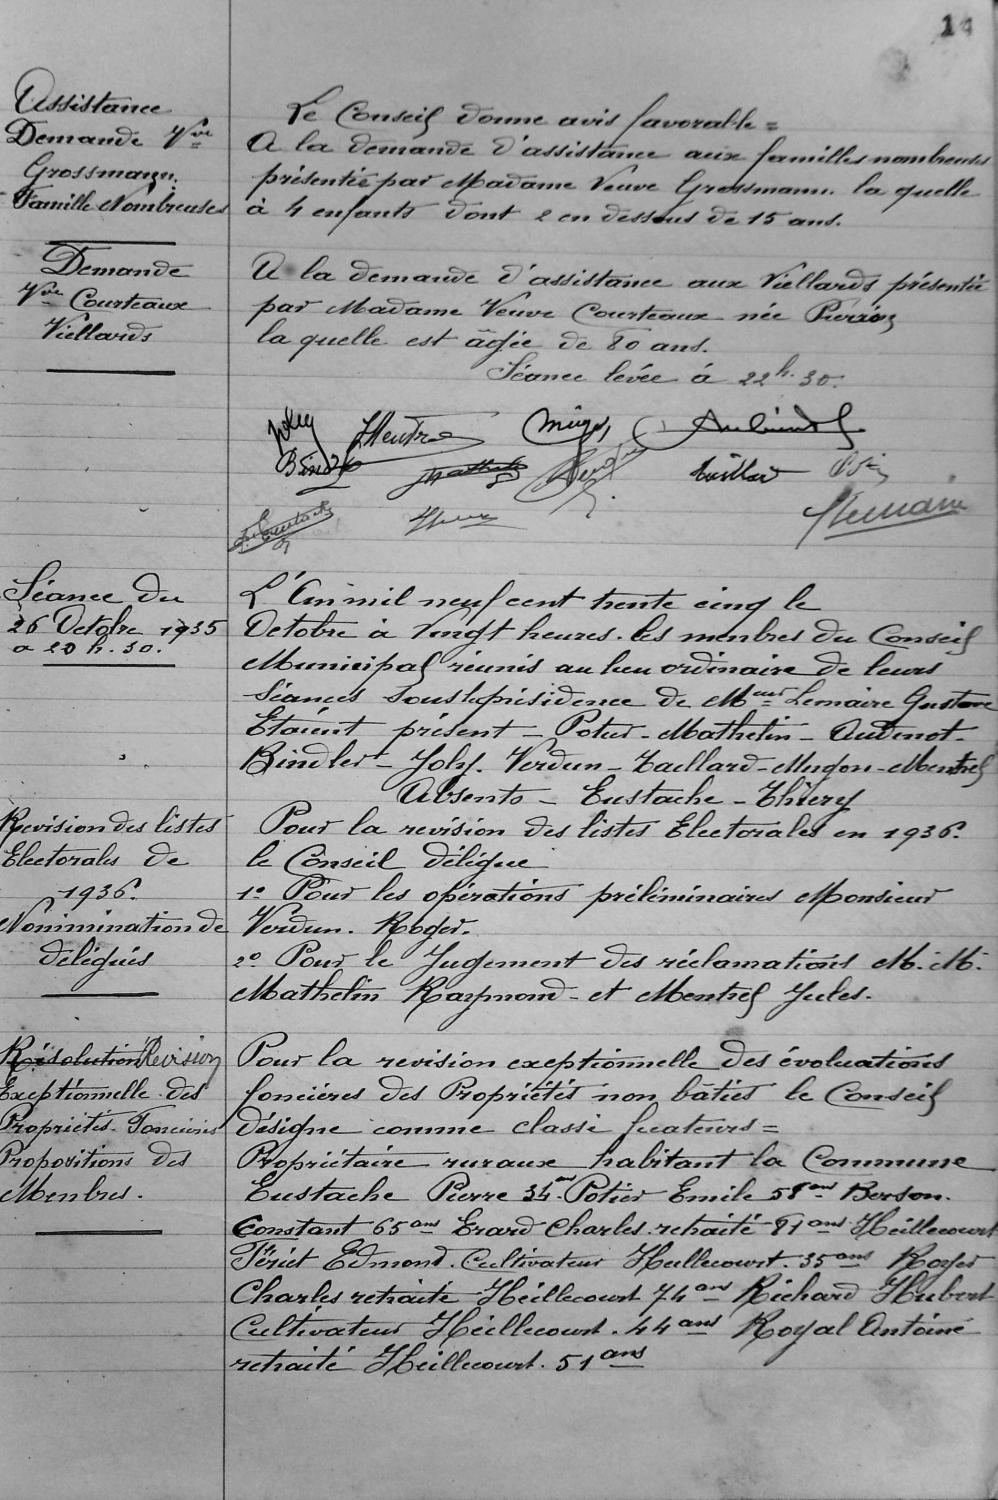 14
Assistance
Demande Vve
Grossmann.
Famille Nombreuses
Le Conseil donne avis favorable =
A la demande d'assistance aux familles nombreuses
présentée par Madame Veuve Grossmann. la quelle
à 4 enfants dont 2 en dessous de 15 ans.
Demande
Vve Courteaux
Viellards
A la demande d'assistance aux Viellards présentée
par Madame Veuve Courteaux née Pierron
la quelle est âgée de 80 ans.
Séance levée à 22h. 30.
Séance du
26 Octobre 1935
a 20 h. 30.
L'An mil neuf cent trente cinq le
Octobre à Vingt heures. les menbres du Conseil
Municipal réunis au lieu ordinaire de leurs
Séances sous la présidence de Meur Lemaire Gustave
Etaient présent - Potier - Mathelin - Audinot -
Bindler - Joly. Verdun - Taillard - Mugon - Mentrel
Absents - Eustache - Thiery
Revision des listes
Electorales de
1936.
Nominination de
délégués
Pour la revision des listes Electorales en 1936.
le Conseil délégue
1º Pour les opérations préliminaires Monsieur
Verdun. Roger.
2º Pour le Jugement des réclamations M. M.
Mathelin Raymond - et Mentrel Jules.
Résolution Revision
Exeptionnelle des
Propriétés Foncieres
Propositions des
Menbres.
Pour la revision exeptionnelle des évoluations
foncières des Propriétés non bâties le Conseil
désigne comme classi ficateurs =
Propriétaire ruraux habitant la Commune
Eustache Pierre 34 ans. Potier Emile 58 ans Berson.
Constant 65 ans Erard Charles. retraité 81 ans Heillecourt
Férict Edmond. Cultivateur Heillecourt. 35 ans Royer
Charles retraité Heillecourt 74 ans Richard Hubert
Cultivateur Heillecourt. 44 ans Royal Antoine
retraité Heillecourt. 51 ans